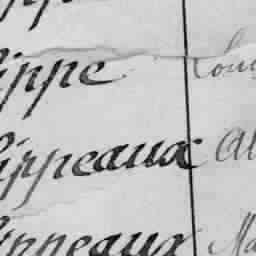 lippe Lou
lippeaux Al
lippeaux Ma